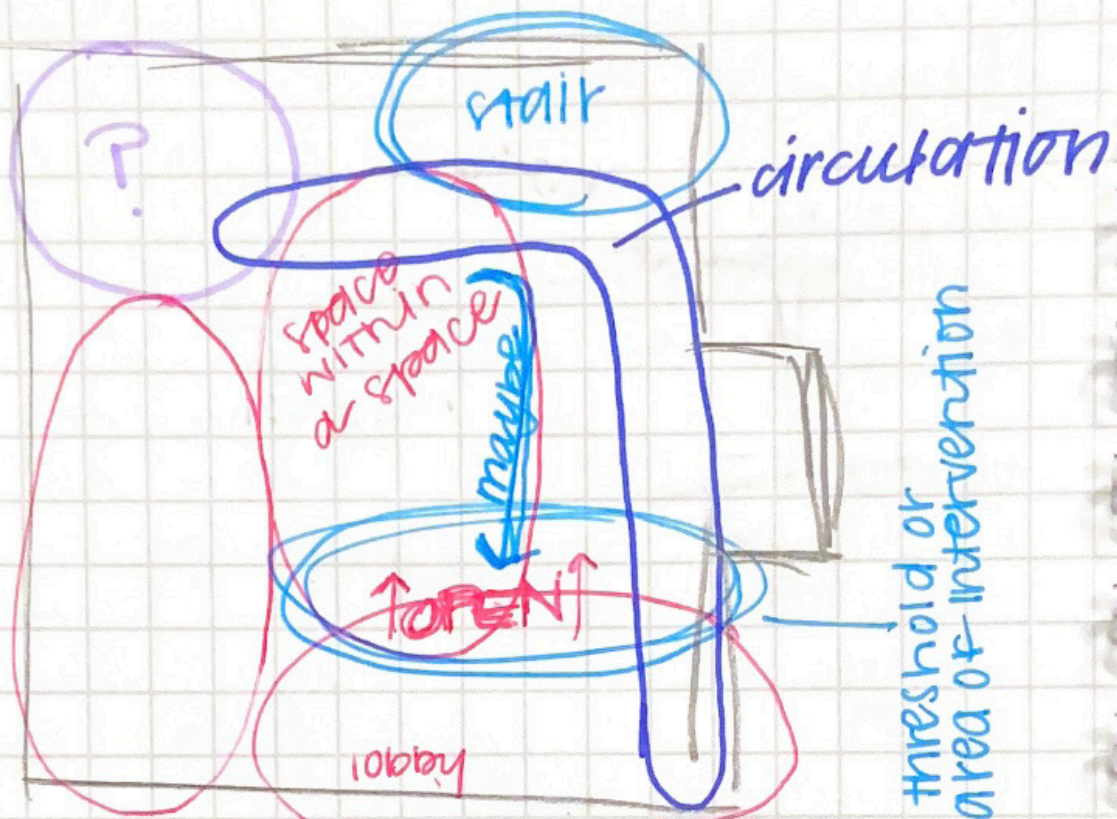 ?
stair
circulation
space
within
a space
maybe
↑OPEN↑
threshold or
area of intervention
lobby